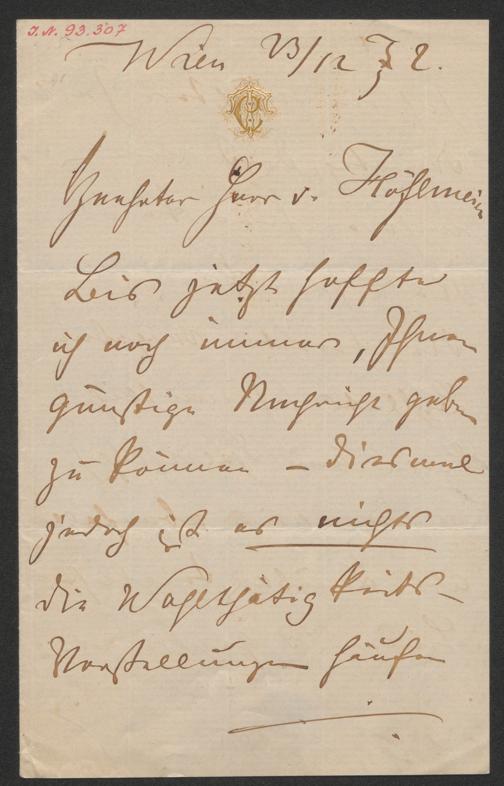 I.N. 93.307
Wien 23/12 72.
Geehrter Herr v.
Bis jetzt hoffte
ich noch immer, Ihnen
günstige Nachricht geben
zu können – diesmal
jedoch ist es nichts
die Wohlthätigkeits-
Vorstellungen häufen